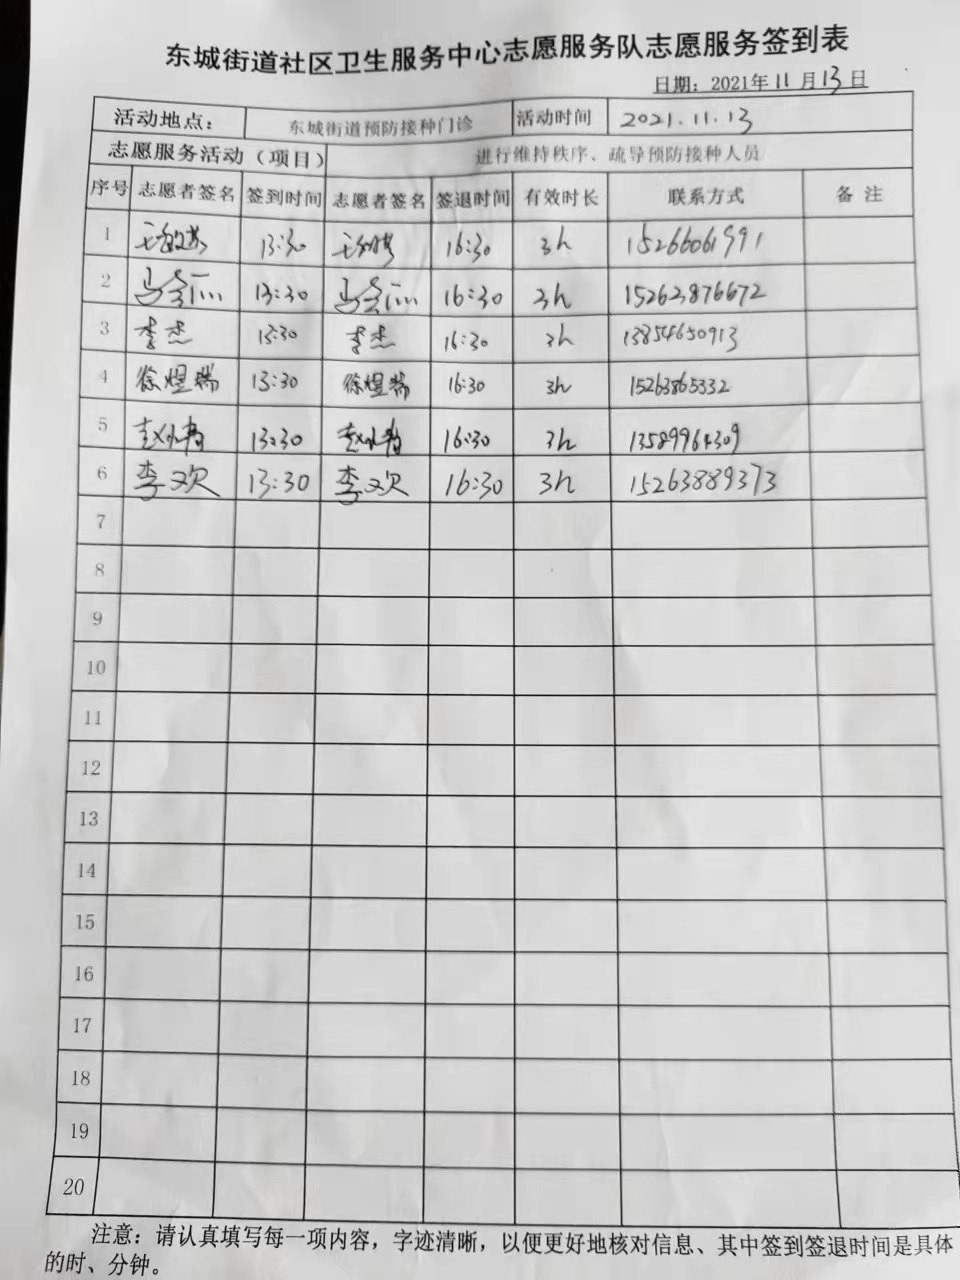 东城街道社区卫生服务中心志愿服务队志愿服务签到表
日期：2021年11月13日
活动地点： 东城街道预防接种门诊 活动时间 2021.11.13
志愿服务活动（项目） 进行维持秩序、疏导预防接种人员
序号 志愿者签名 签到时间 志愿者签名 签退时间 有效时长 联系方式 备注
1 13:30 16:30 3h 15266061991
2 13:30 16:30 3h 15263876672
3 李杰 13:30 李杰 16:30 3h 13854650913
4 徐煜瑞 13:30 徐煜瑞 16:30 3h 15263865332
5 13:30 16:30 3h 13589964309
6 李欢 13:30 李欢 16:30 3h 15263889373
7
8
9
10
11
12
13
14
15
16
17
18
19
20
注意：请认真填写每一项内容，字迹清晰，以便更好地核对信息、其中签到签退时间是具体
的时、分钟。